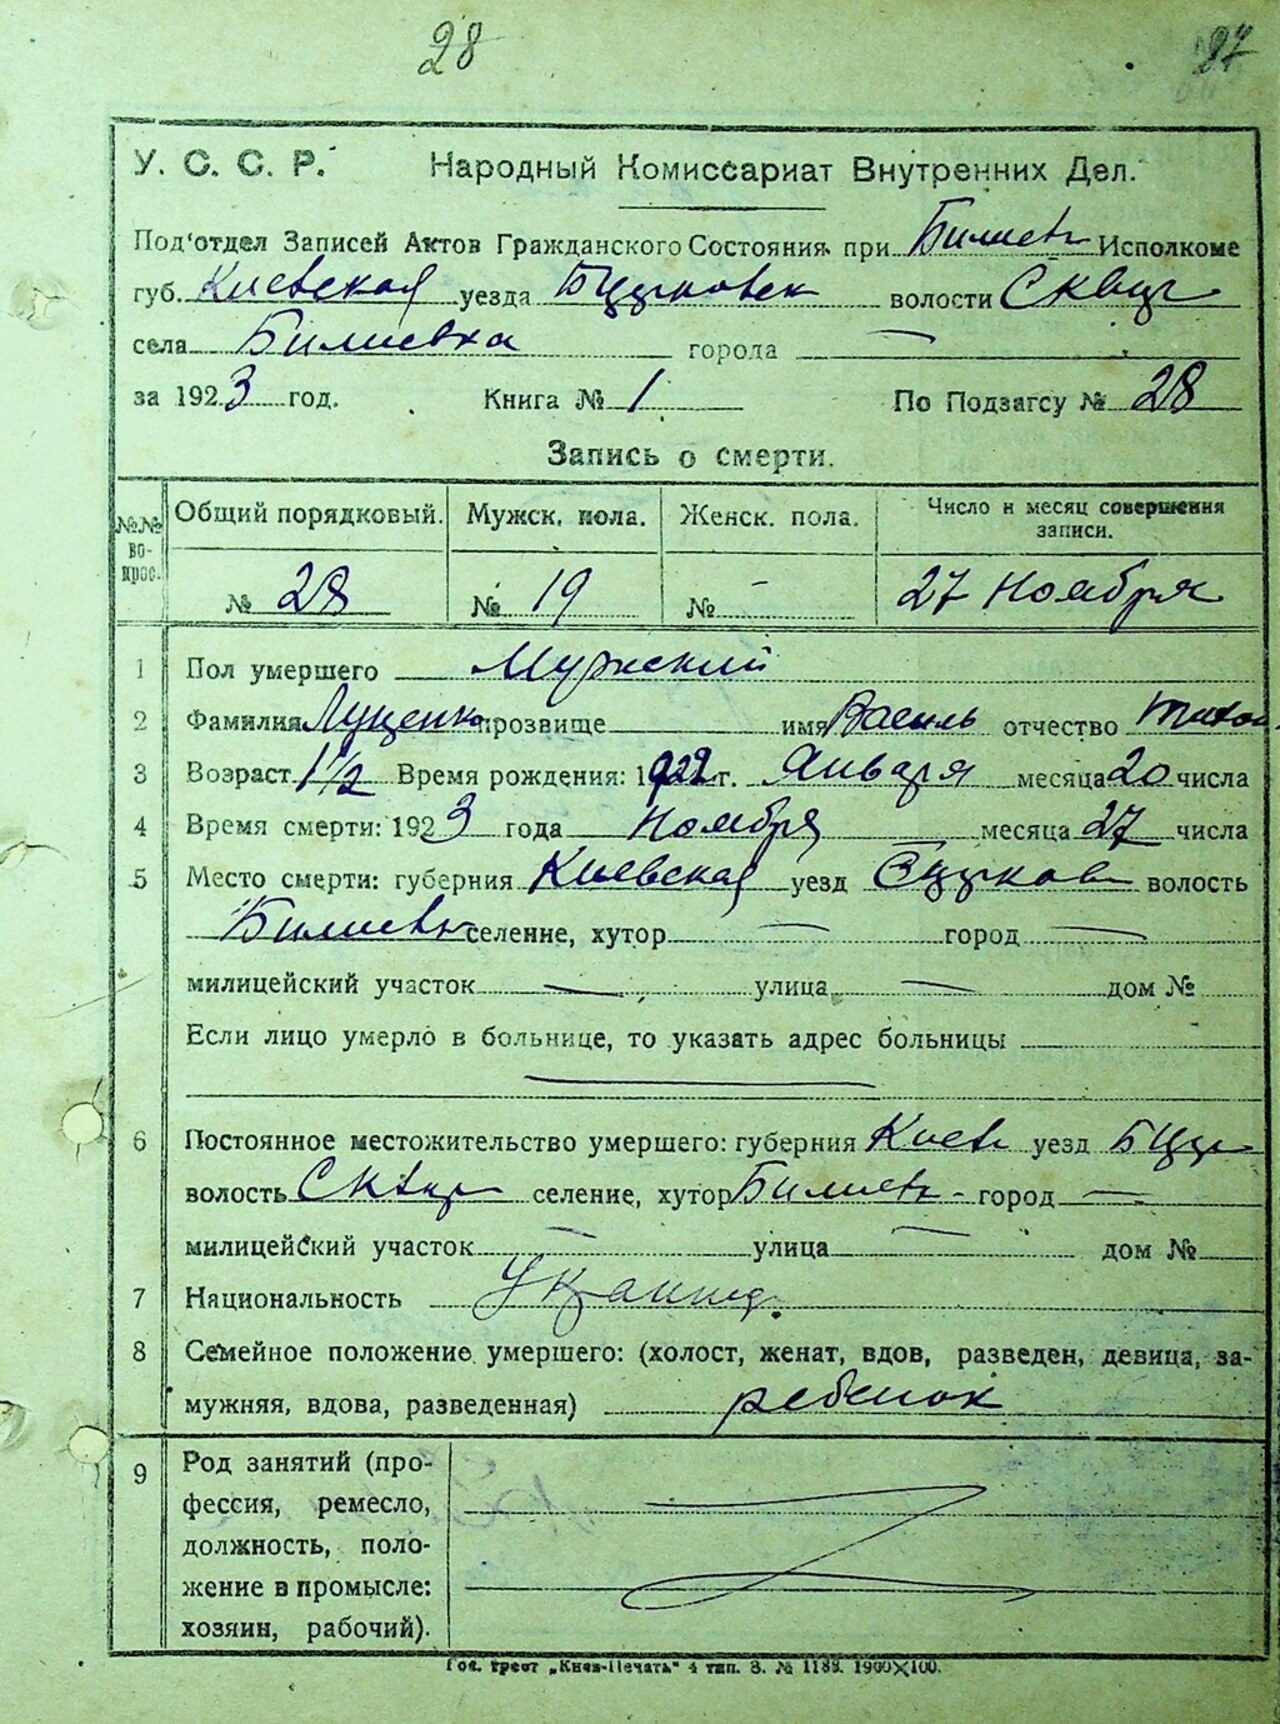 28
27
У. С. С. Р. Народный Комиссариат Внутренних Дел.
Под'отдел Записей Актов Гражданского Состояния при Билиевк Исполкоме
губ. Киевская уезда БЦерковск волости Сквир
села Билиевка города —
за 1923 год. Книга № 1 По Подзагсу № 28
Запись о смерти.
№№ вопрос. Общий порядковый. Мужск. пола. Женск. пола. Число и месяц совершения записи.
№ 28 № 19 № — 27 Ноября
1 Пол умершего Мужский
2 Фамилия Луценко прозвище имя Василь отчество Тихон
3 Возраст 1 1/2 Время рождения: 1922 г. Января месяца 20 числа
4 Время смерти: 1923 года Ноября месяца 27 числа
5 Место смерти: губерния Киевская уезд БЦерков волость
Билиевк селение, хутор — город —
милицейский участок — улица — дом №
Если лицо умерло в больнице, то указать адрес больницы
—
6 Постоянное местожительство умершего: губерния Киев уезд БЦер
волость Сквир селение, хутор Билиевк город —
милицейский участок — улица — дом №
7 Национальность Украинец
8 Семейное положение умершего: (холост, женат, вдов, разведен, девица, за-
мужняя, вдова, разведенная) ребенок
9 Род занятий (про-
фессия, ремесло,
должность, поло-
жение в промысле:
хозяин, рабочий).
Гос. трест „Киев-Печать" 4 тип. З. № 1189. 1900×100.